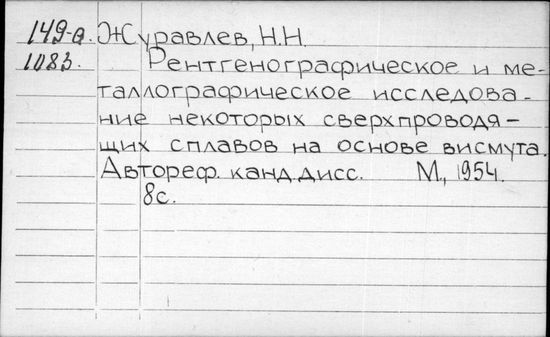 149-а. Журавлев, Н.Н.
1083. Рентгенографическое и ме-
таллографическое исследова-
ние некоторых сверхпроводя-
щих сплавов на основе висмута.
Автореф. канд. дисс. М., 1954.
8с.